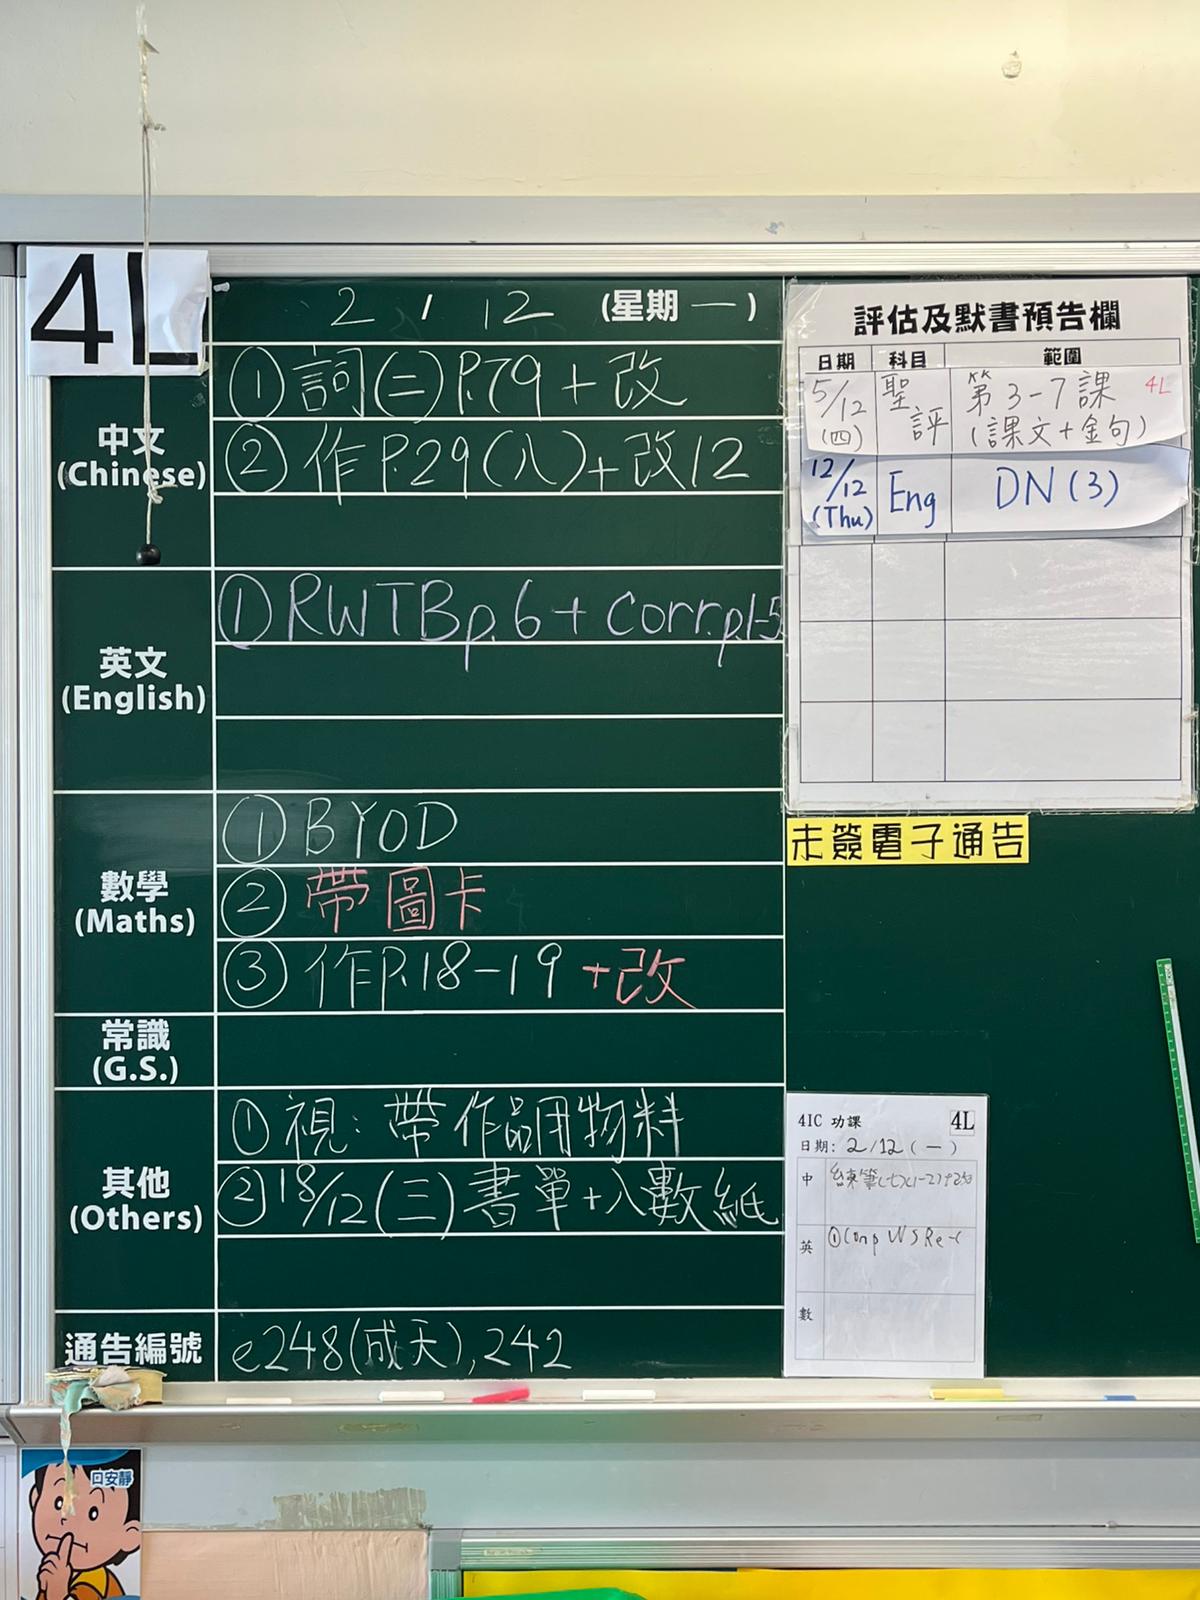 4L
2 / 12 (星期 一)
中文
(Chinese)
① 詞(二)P.79 + 改
② 作P.29(八)+改12
英文
(English)
① RWTB p.6 + Corr.p.1-5
數學
(Maths)
① BYOD
② 帶圖卡
③ 作P.18-19 +改
常識
(G.S.)
其他
(Others)
① 視: 帶作品用物料
② 18/12(三)書單+入數紙
通告編號
e248(成天),242
評估及默書預告欄
日期 科目 範圍
5/12 (四) 聖評 第3-7課 4L
(課文+金句)
12/12 (Thu) Eng DN(3)
未簽電子通告
4IC 功課 4L
日期: 2/12(一)
中
英 ① Comp WS
數
口安靜